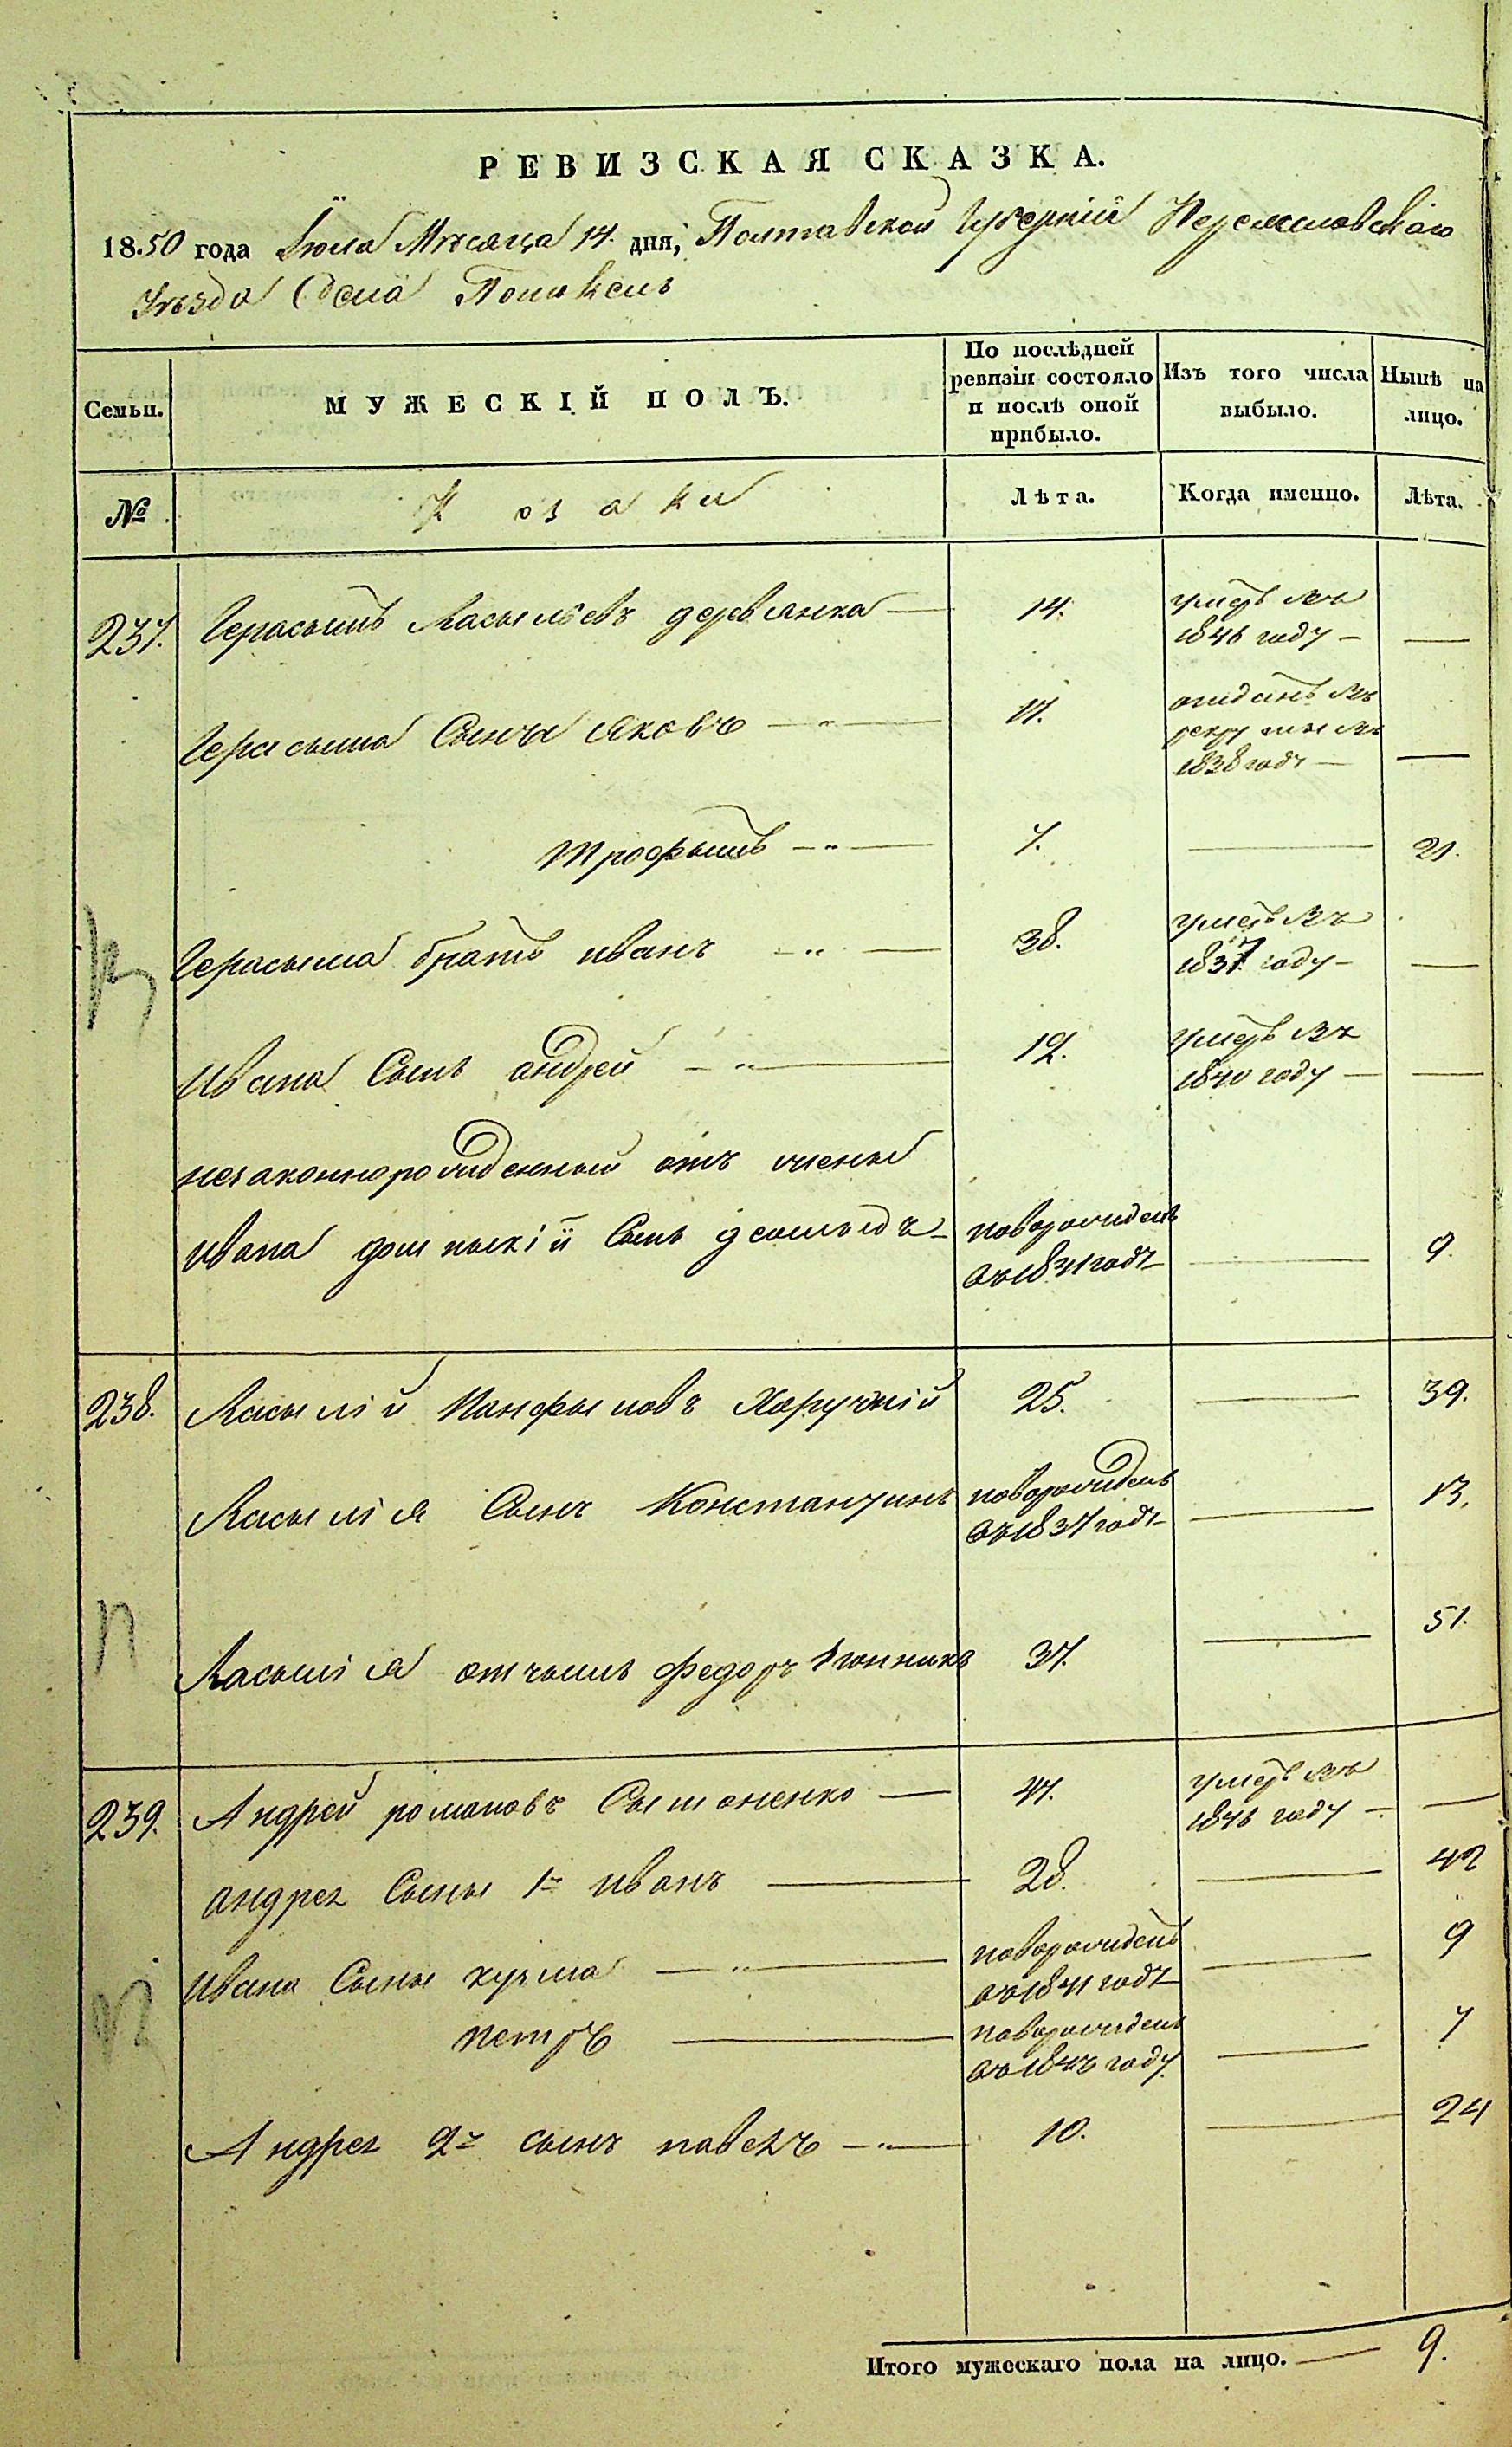 РЕВИЗСКАЯ СКАЗКА.
18.50 года Іюля Мѣсяца 14. дня, Полтавской Губерніи Переяславскаго
Уѣзда Села
Семьи.
МУЖЕСКІЙ ПОЛЪ.
По послѣдней ревизіи состояло и послѣ оной прибыло.
Изъ того числа выбыло.
Нынѣ на лицо.
№
Козаки
Лѣта.
Когда именно.
Лѣта.
237. Герасымъ Васыльевъ деревянка — 14. умеръ въ
1846 году — —
Герасыма Сынъ яковъ — " — 17. отданъ въ
рекруты въ
1838 году — —
трофымъ — " — 7. — 21.
Герасыма братъ иванъ — " — 38. умеръ въ
1837 году — —
Ивана Сынъ андрей — " — 12. умеръ въ
1840 году — —
незаконнорожденный отъ жены
ивана Сынъ новорожденъ
въ 1841 годѣ — — 9.
238. Васылій Панфыловъ Харучній 25. — 39.
Васылія Сынъ Константинъ новорожденъ
въ 1837 годѣ — — 13.
Васылія отчымъ федоръ 37. — 51.
239. Андрей романовъ Сымоненко — 47. умеръ въ
1846 году — —
андрея Сыны 1й иванъ — 28. — 42
Ивана Сыны кузма — " — новорожденъ
въ 1841 годѣ — — 9
петръ — новорожденъ
въ 1843 году — 7
Андрея 2й сынъ павелъ — " — 10. — 24
Итого мужескаго пола на лицо. — 9.